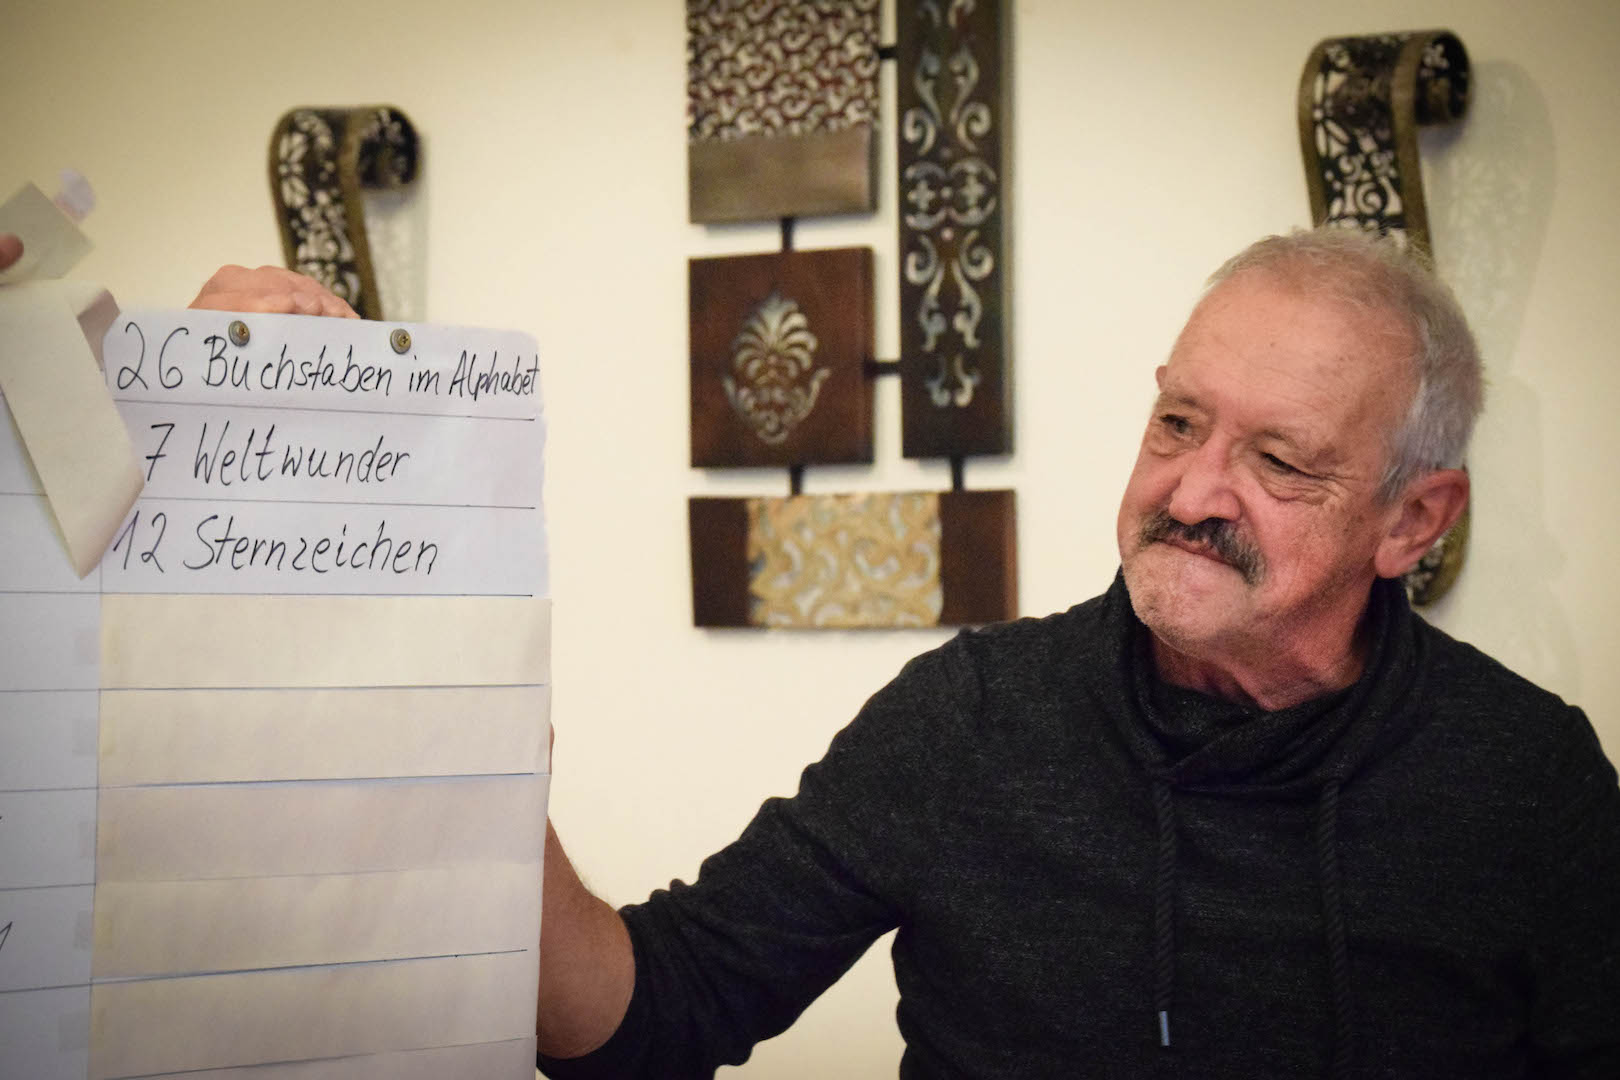 26 Buchstaben im Alphabet
7 Weltwunder
12 Sternzeichen